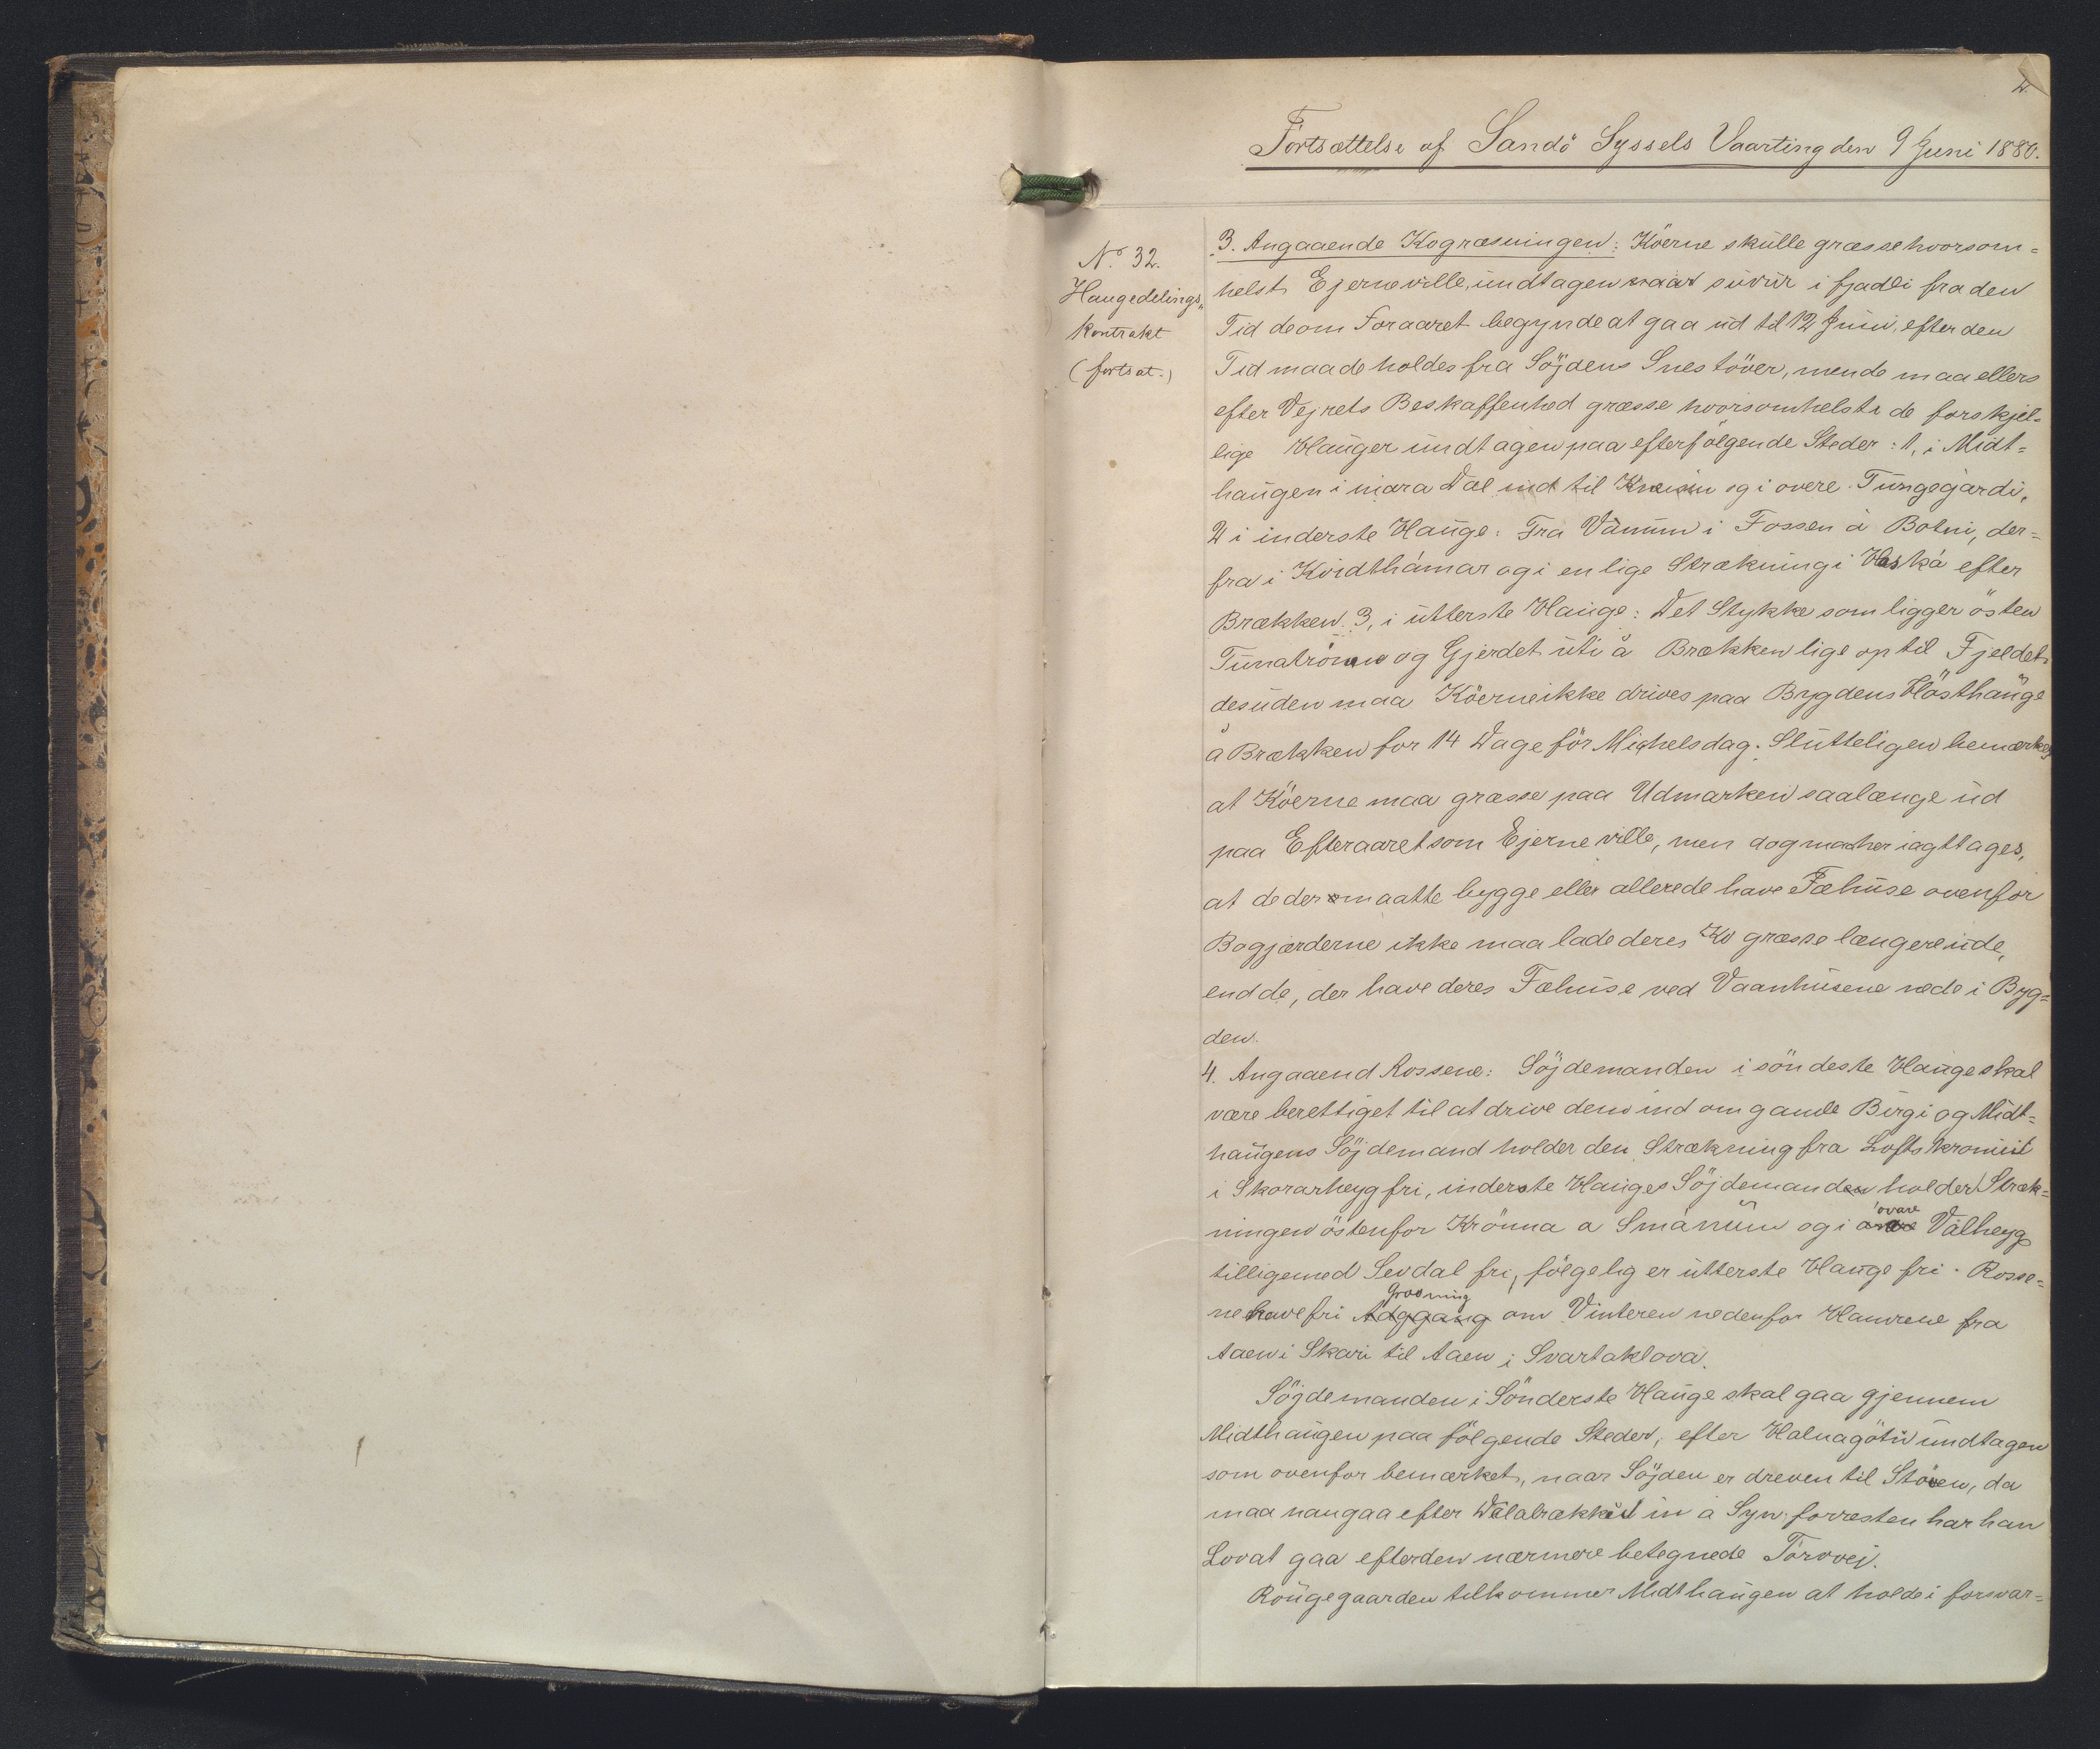 2.
Fortsættelse af Sandö Syssels Vaarting den 9 Juni 1880.
N.o 32.
Haugedelings„
kontrakt
(fortsat.)
3. Angaaende Kogræsningen: Köerne skulle græsse hvorsom=
helst Ejerne ville, undtagen suður i fjadli fra den
Tid de om Foraaret begynde at gaa ud til 12 Juni, efter den
Tid maa de holdes fra Söjdens Snestöver, men de maa ellers
efter Vejrets Beskaffenhed græsse hvorsomhelst i de forskjel-
lige Hauger undtagen paa efterfölgende Steder: 1, i Midt=
haugen i niara Dal ind til og i overe Tungegardi,
2 i inderste Hauge: Fra Vánum i Fossen á Botni, der=
fra i Kvidthámar og i en lige Strækning i Haská efter
Brækken. 3, i utterste Hauge: Det Stykke som ligger östen
og Gjerdet uti á Brækken lige op til Fjeldet.
desuden maa Köerne ikke drives paa Bygdens Hösthauge
á Brækken for 14 Dage för Michelsdag. Slutteligen bemærkes
at Köerne maa græsse paa Udmarken saalænge ud
paa Efteraaret som Ejerne ville, men dog maa her iagttages,
at de der maatte bygge eller allerede have Fæhuse ovenfor
Bøgjærderne ikke maa lade deres Ko græsse længere ude,
end de, der have deres Fæhuse ved Vaanhusene nede i Byg=
den.
4. Angaaend Rossene: Söjdemanden i söndeste Hauge skal
være berettiget til at drive dem ind om gamle Birgi og Midt=
haugens Söjdemand holder den Strækning fra Lofts
i Skorarheyg fri, inderste Hauges Söjdemanden holder Stræk=
ningen östenfor Krönna a Smánum og i óvare Válheyg
tilligemed Sevdal fri, fölgelig er utterste Hauge fri. Rosse=
ne have fri Adggang Græsning om Vinteren nedenfor Hamrene fra
Aaen i Skari til Aaen i Svartaklová.
Söjdemanden i Sönderste Hauge skal gaa gjennem
Midthaugen paa fölgende Steder, efter Halnagötu undtagen
som ovenfor bemærket, naar Söjden er dreven til Stöven, da
maa han gaa efter Dalabrækkut in á Syn. forresten har han
Lov at gaa efter den nærmere betegnede Törvvej.
Röugegaarden tilkommer Midthaugen at holde i forsvar=